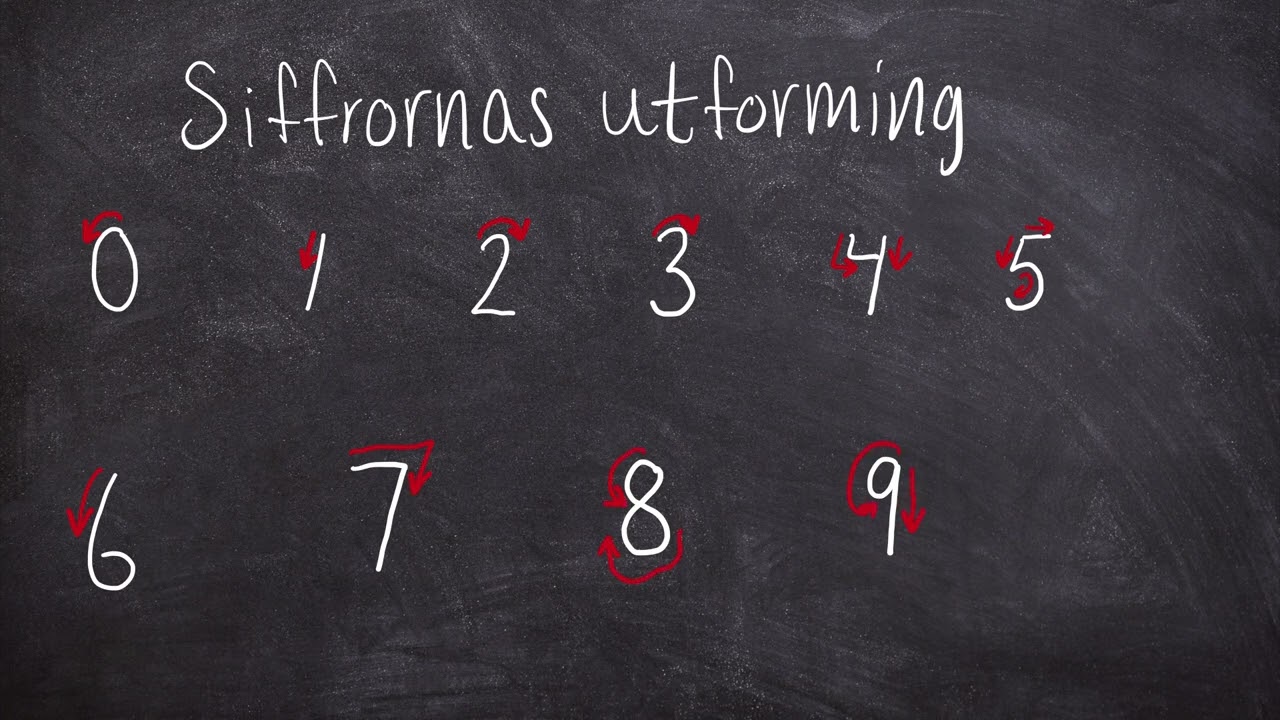 Siffrornas utforming
0 1 2 3 4 5
6 7 8 9